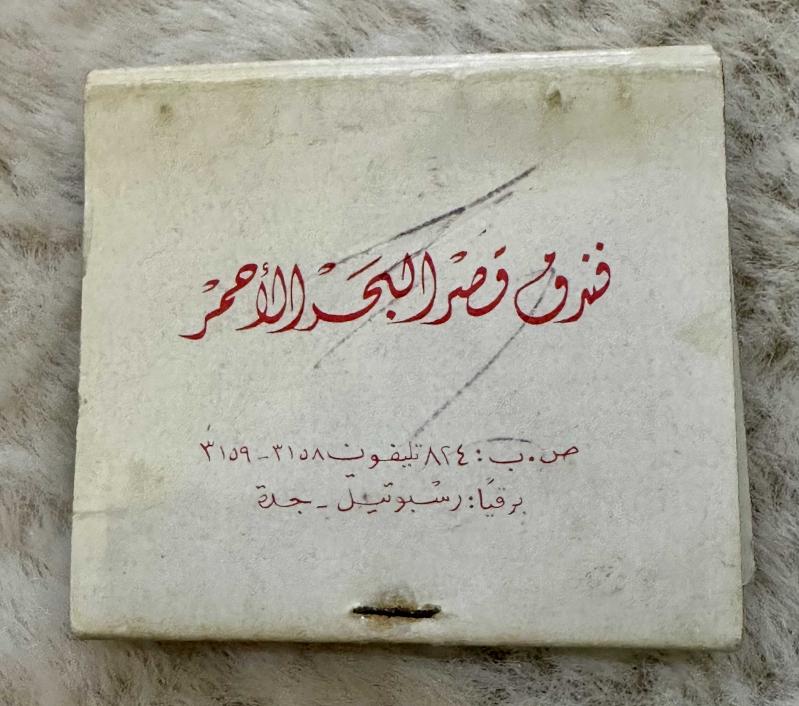 فندق قصر البحر الأحمر
ص.ب: ٨٢٤ تليفون ٣١٥٨-٣١٥٩
برقيًا: رسبوتيل - جدة